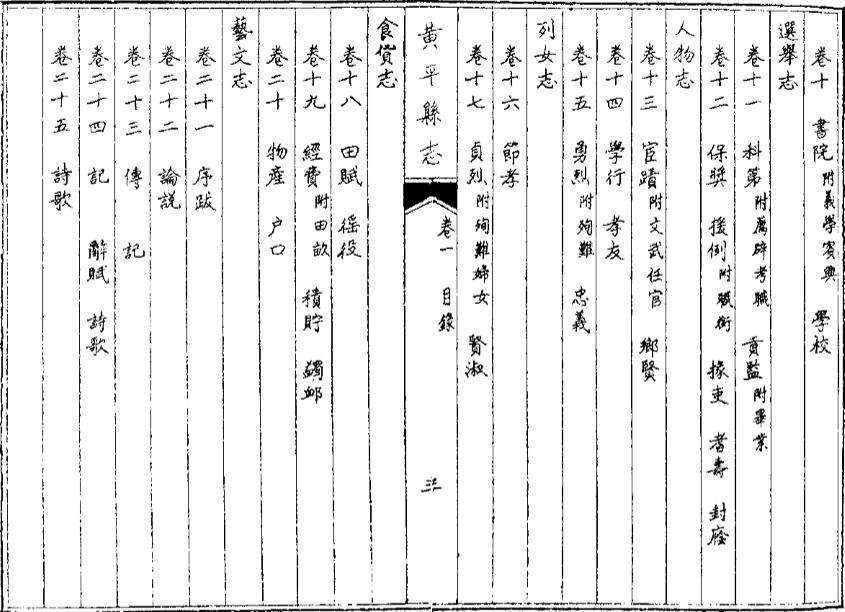 卷十　書院附義學賓興　學校
選舉志
卷十一　科第附薦辟考職　貢監附畢業
卷十二　保獎　援例附職銜　掾吏　耆壽　封廕
人物志
卷十三　宦蹟附文武任官　鄉賢
卷十四　學行　孝友
卷十五　勇烈附殉難　忠義
列女志
卷十六　節孝
卷十七　貞烈附殉難婦女　賢淑
黃平縣志　卷一　目錄　三
食貨志
卷十八　田賦　徭役
卷十九　經費附田畝　積貯　蠲卹
卷二十　物產　户口
藝文志
卷二十一　序跋
卷二十二　論說
卷二十三　傳　記
卷二十四　記　辭賦　詩歌
卷二十五　詩歌